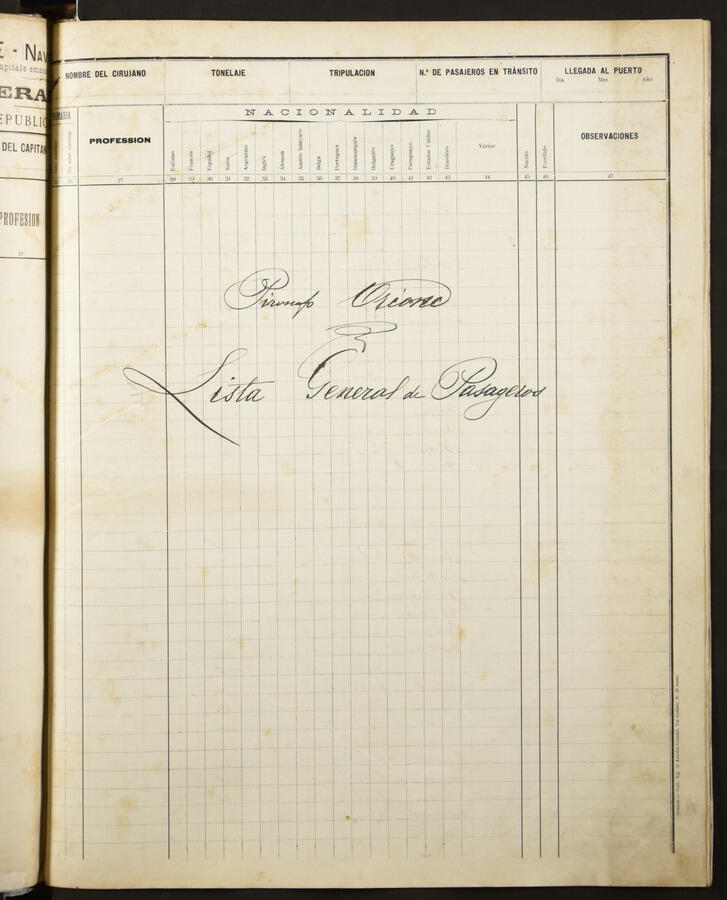 E - NAV
ERA
EPUBLIC
DEL CAPITAN
PROFESION
11
NOMBRE DEL CIRUJANO TONELAJE TRIPULACION N.º DE PASAJEROS EN TRÀNSITO LLEGADA AL PUERTO
Dia Mes Año
NACIONALIDAD
PROFESSION Italiano Francés Español Suizo Argentino Inglés Aleman Belga Portugués Dinamarqués Holgadés Uruguayo Paraguayo Estados Unidos Brasilero Varios Nacido Fecallido OBSERVACIONES
27 28 29 30 31 32 33 34 35 36 37 38 39 40 41 42 43 44 45 46 47
Pironcaf Orione
Lista General de Pasageros